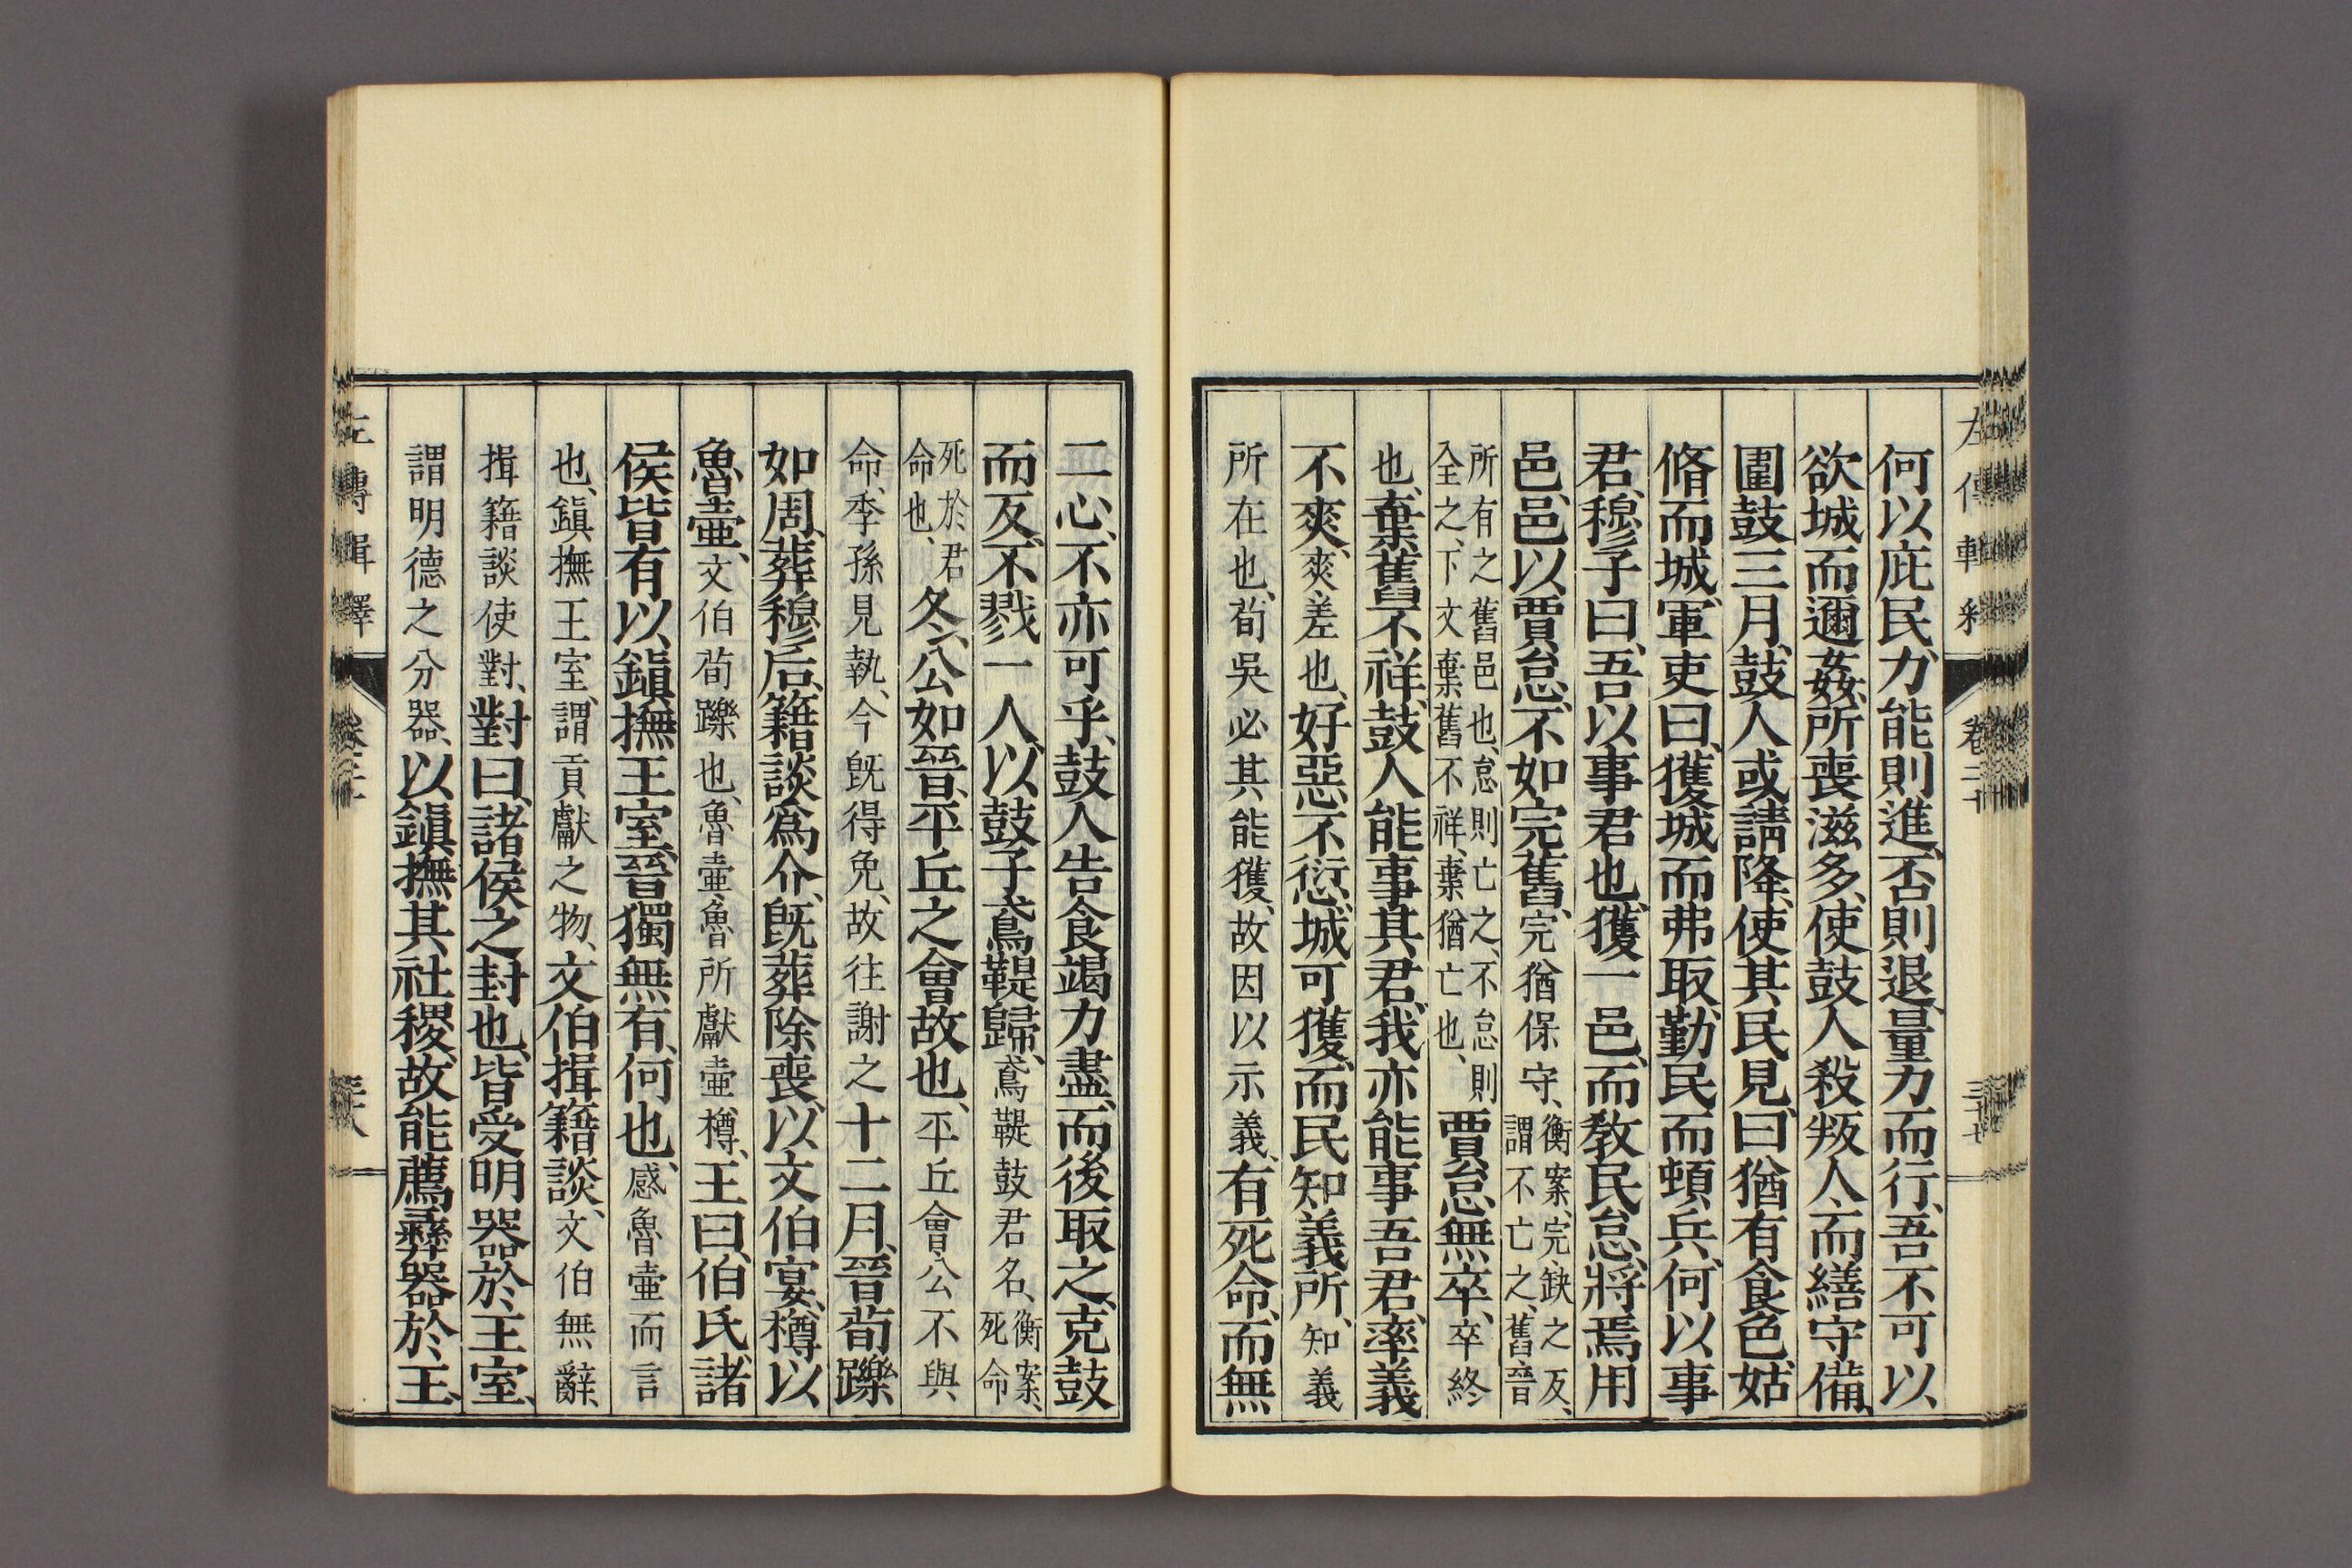 何以庇民、力能則進、否則退、量力而行、吾不可以
欲城而邇姦、所喪滋多、使鼓人殺叛人、而繕守備、
圍鼓三月、鼓人或請降、使其民見、曰、猶有食色、姑
脩而城、軍吏曰、獲城而弗取、勤民而頓兵、何以事
君、穆子曰、吾以事君也、獲一邑、而敎民怠、將焉用
邑、邑以賈怠、不如完舊、完猶保守、衡案、完、缺之反、謂不亡之、舊、音
所有之舊邑也、怠則亡之、不怠則全之、下文棄舊不祥、棄猶亡也、賈怠無卒、卒終
也、棄舊不祥、鼓人能事其君、我亦能事吾君、率義
不爽、爽差也、好惡不愆、城可獲、而民知義所、知義
所在也、荀吳必其能獲、故因以示義、有死命、而無
二心、不亦可乎、鼓人告食竭力盡、而後取之、克鼓
而反、不戮一人、以鼓子鳶鞮歸、鳶鞮鼓君名、衡案、死命
死於君命也、冬、公如晉、平丘之會故也、平丘會公不與
命、季孫見執、今旣得免、故往謝之十二月、晉荀躒
如周、葬穆后、籍談爲介、旣葬除喪、以文伯宴、樽以
魯壷、文伯荀躒也、魯壷、魯所獻壷樽、王曰、伯氏、諸
侯皆有以鎭撫王室、晉獨無有、何也、感魯壷而言
也、鎭撫王室、謂貢獻之物、文伯揖籍談、文伯無辭、
揖籍談使對、對曰、諸侯之封也、皆受明器於王室、
謂明德之分器、以鎭撫其社稷、故能薦彝器於王、
左傳輯釋
卷二十
三十七